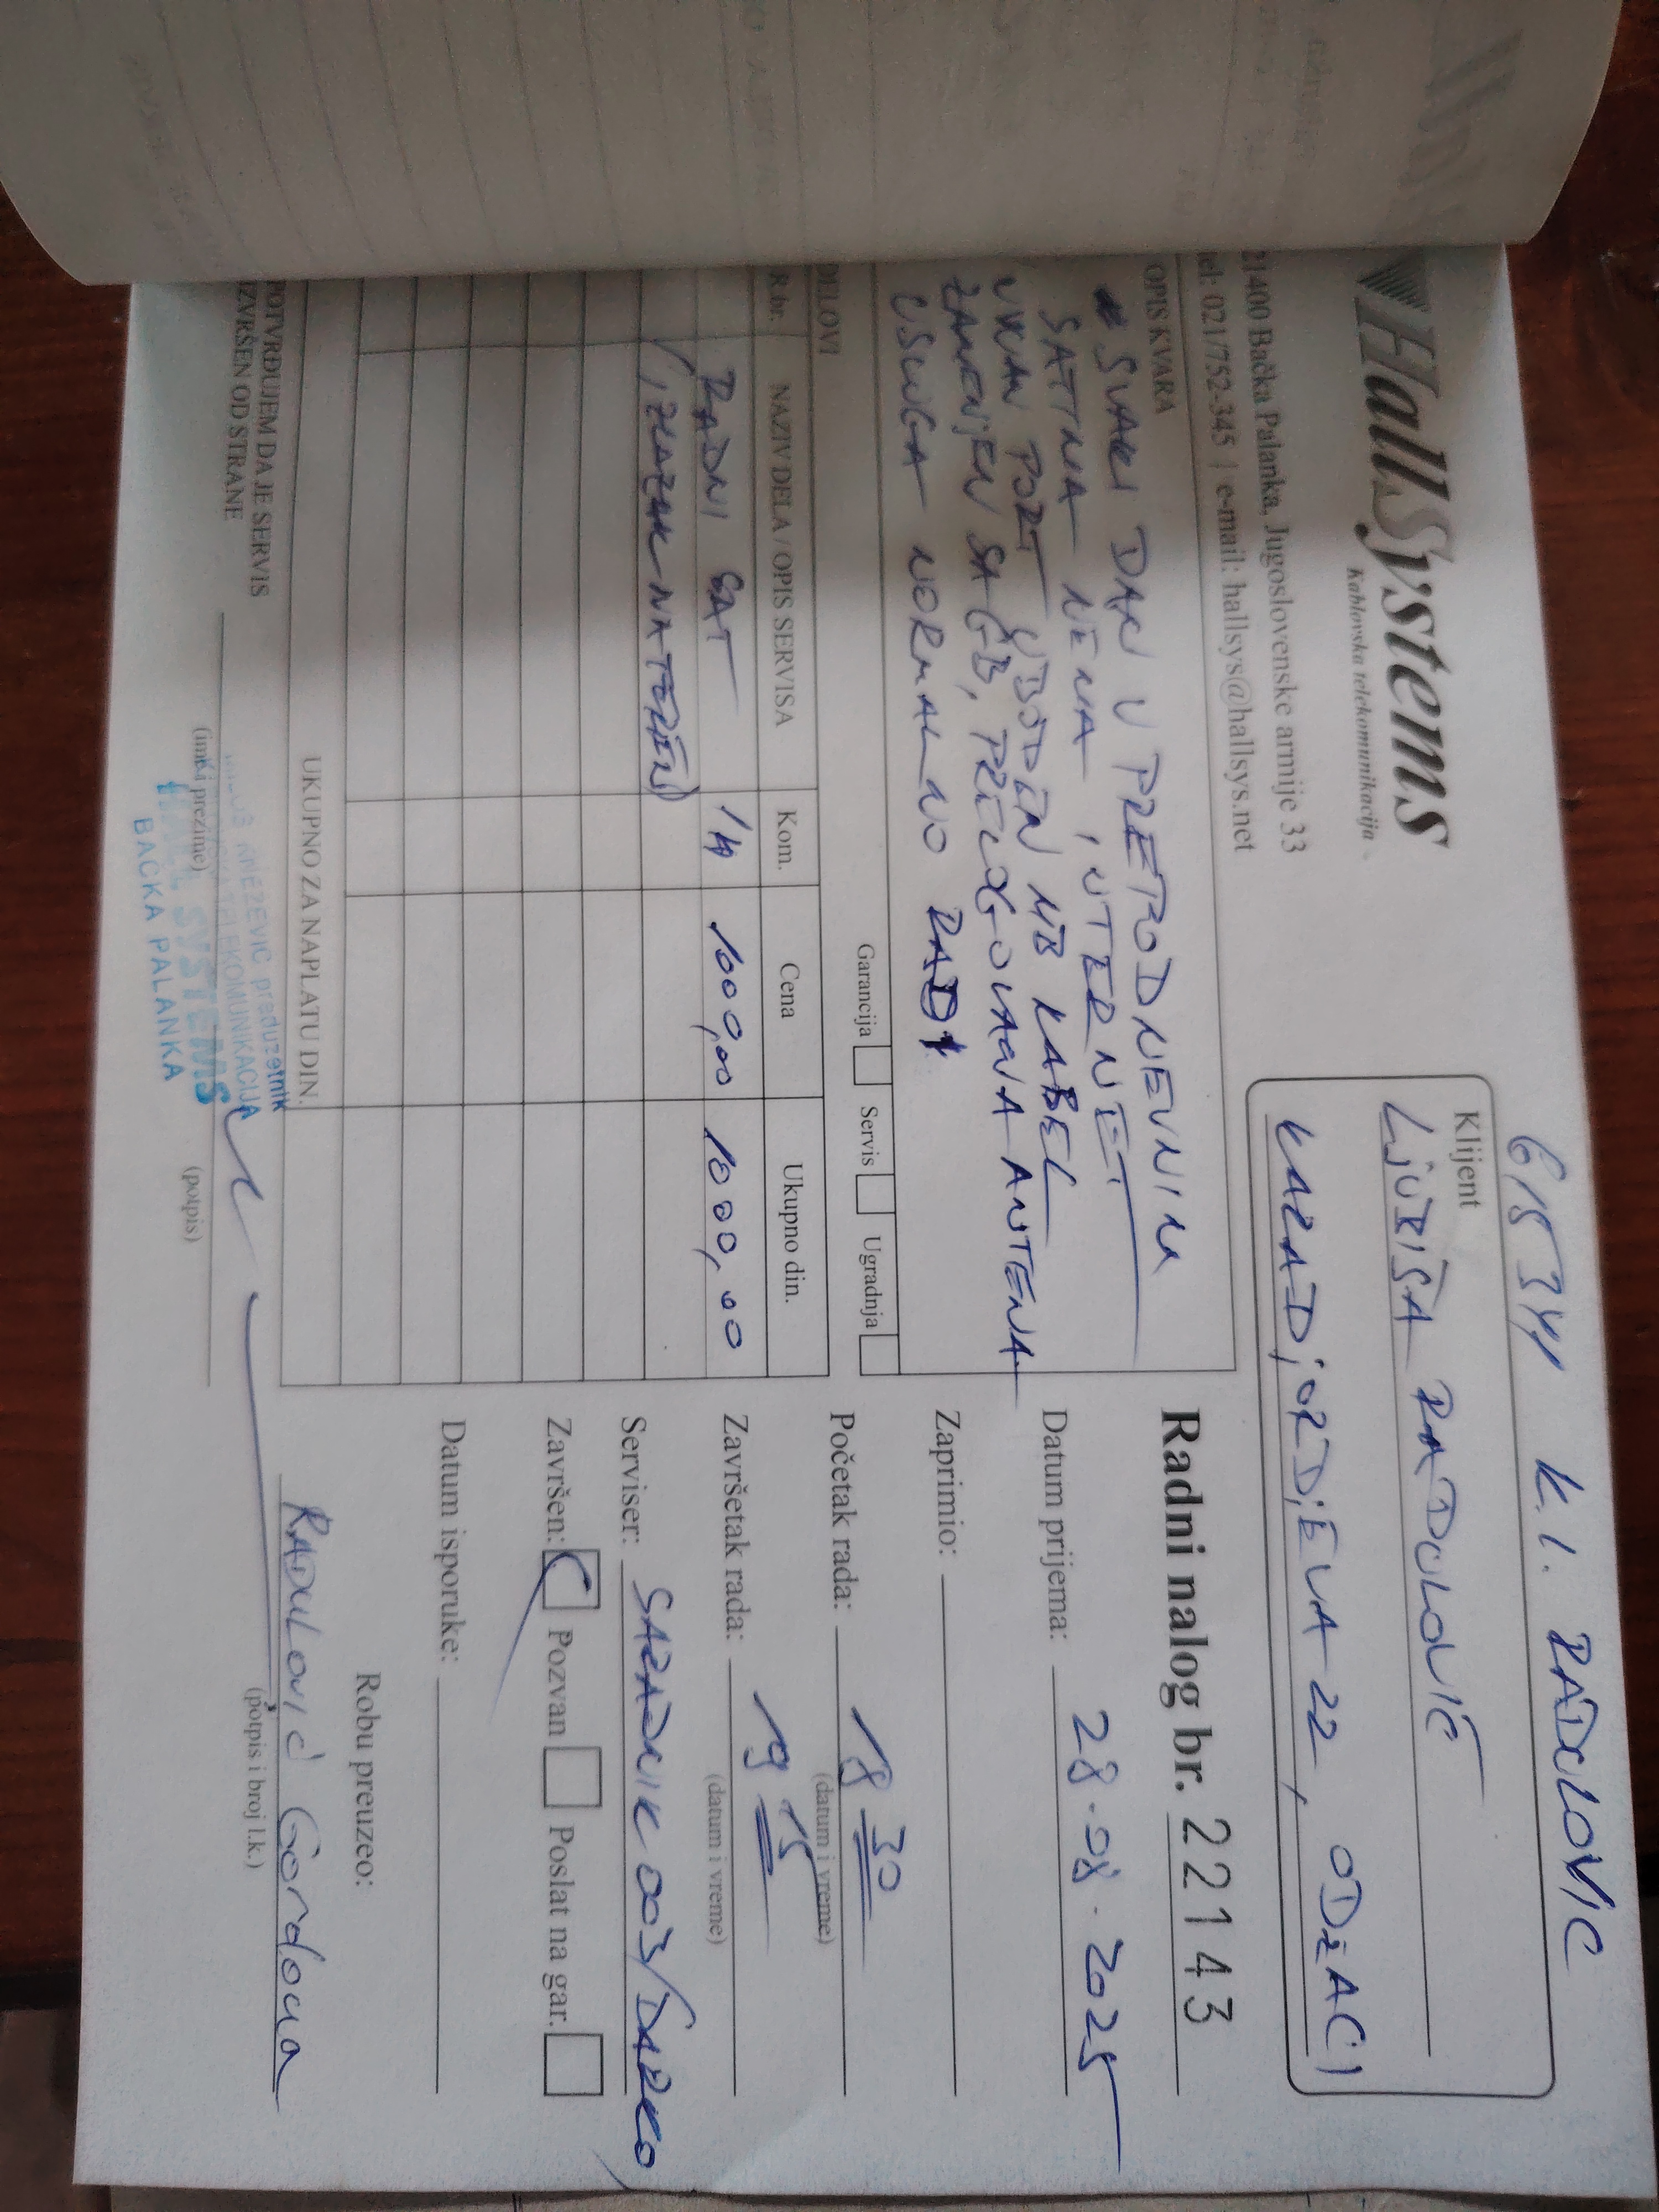 HallSystems
Kablovska telekomunikacija
21400 Bačka Palanka, Jugoslovenske armije 33
tel: 021/752-345 | e-mail: hallsys@hallsys.net
K.I. RADULOVIĆ
Klijent
LJUBIŠA RADULOVIĆ
KARADJORDJEVA 22, ODŽACI
OPIS KVARA
SVAKI DAN U PREPODNEVNIM
SATIMA NEMA INTERNET
PORT UBODEN MB KABEL
ZAMENJEN SA GB, PRILAGOĐAVANA ANTENA
USLUGA NORMALNO RADI
Garancija Servis Ugradnja
Radni nalog br. 22143
Datum prijema: 28.08.2025
Zaprimio:
Početak rada: 18 30
(datum i vreme)
Završetak rada: 19 15
(datum i vreme)
Serviser: SARADNIK 003/DARKO
Završen: Pozvan Poslat na gar.
Datum isporuke:
Robu preuzeo:
Radulović Gordana
(potpis i broj l.k.)
DELOVI
R.br. NAZIV DELA / OPIS SERVISA Kom. Cena Ukupno din.
RADNI SAT 1/4 1000,00 1000,00
IZLAZAK NA TEREN)
UKUPNO ZA NAPLATU DIN.
POTVRĐUJEM DA JE SERVIS
IZVRŠEN OD STRANE
(ime i prezime) (potpis)
KNEŽEVIĆ preduzetnik
TELEKOMUNIKACIJA
HALL SYSTEMS
BAČKA PALANKA